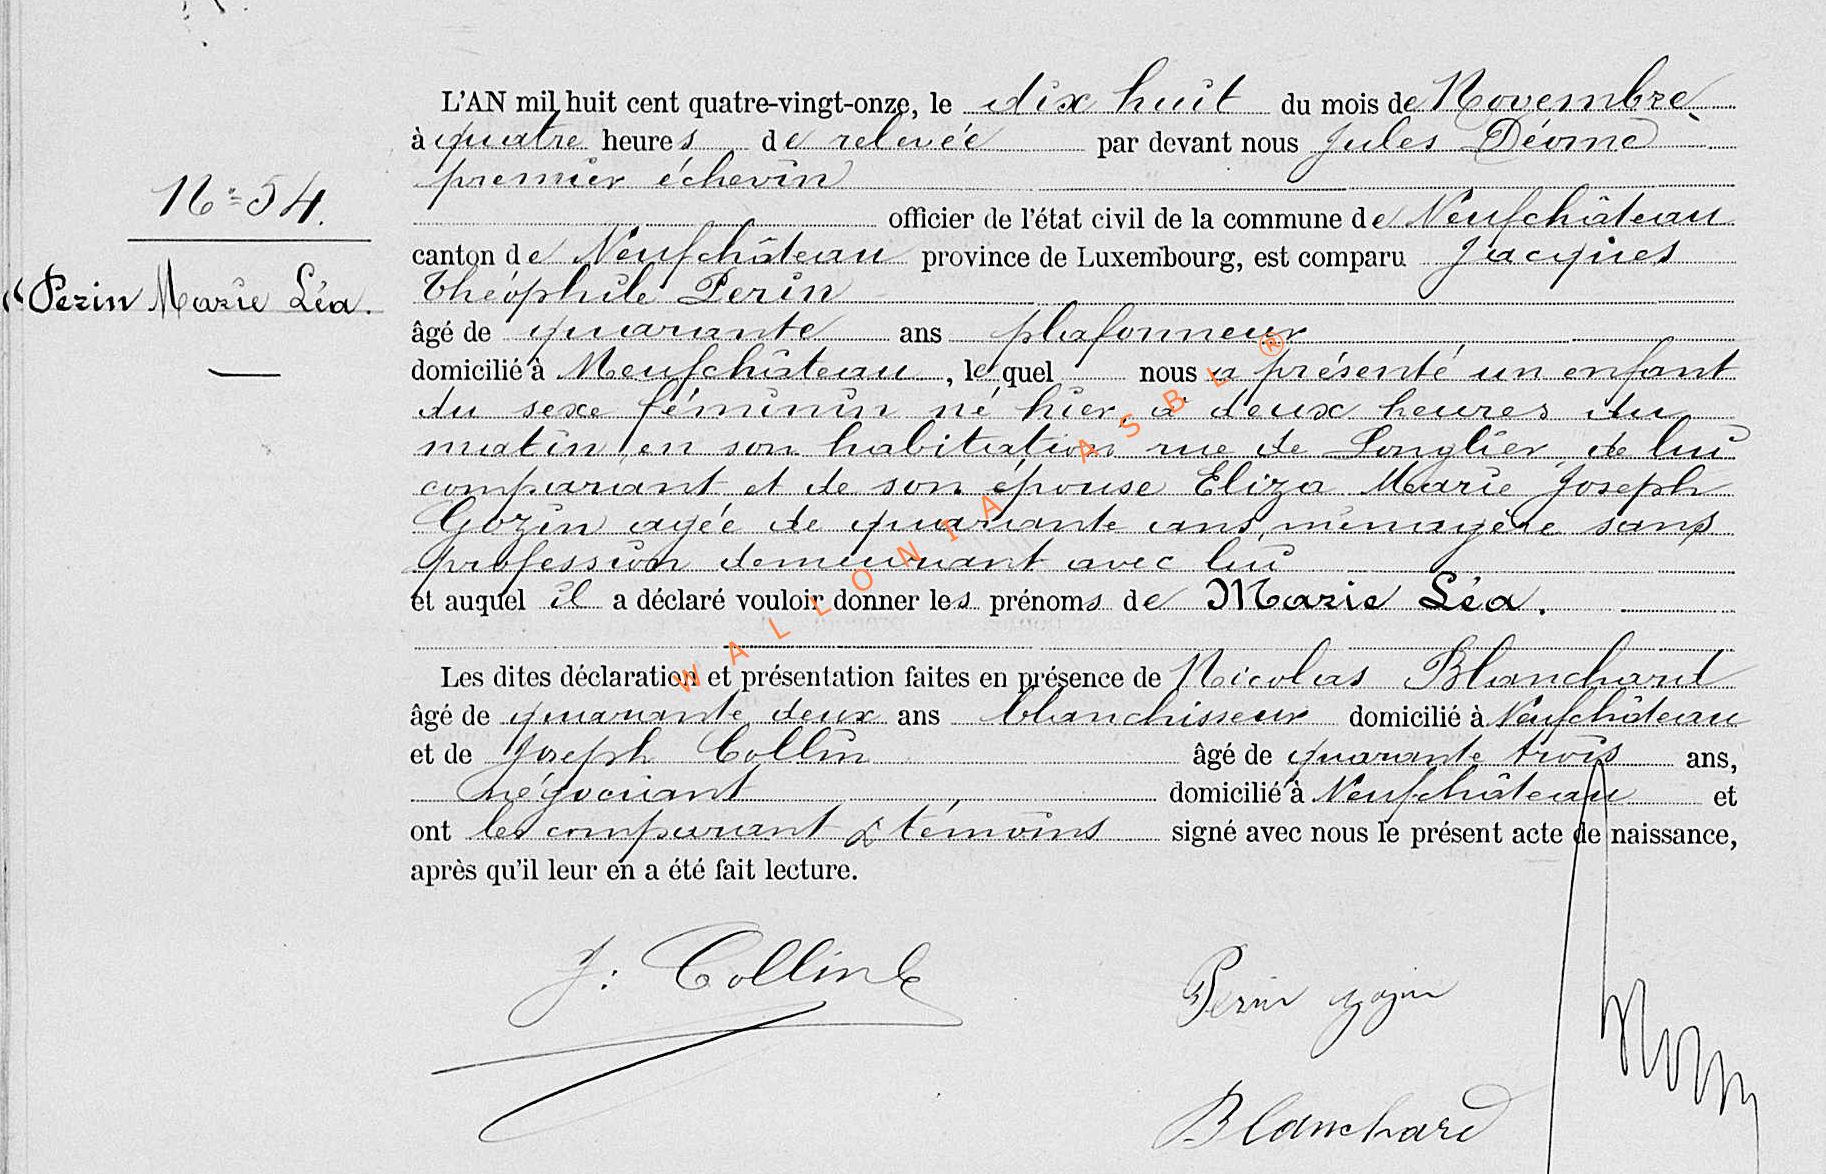 L'AN mil huit cent quatre-vingt-onze, le dix huit du mois de Novembre
à quatre heures de relevée par devant nous Jules Déome
premier échevin
N° 54.
officier de l'état civil de la commune de Neufchâteau
canton de Neufchâteau province de Luxembourg, est comparu Jacques
Perin Marie Léa.
Théophile Perin
âgé de quarante ans plafonneur
domicilié à Neufchâteau, lequel nous a présenté un enfant
du sexe féminin né hier, à deux heures du
matin, en son habitation rue de Longlier, de lui
comparant et de son épouse Eliza Marie Joseph
Gozin agée de quarante ans, ménagère sans
profession demeurant avec lui
et auquel il a déclaré vouloir donner les prénoms de Marie Léa.
WALLONIA ASBL ®
Les dites déclaration et présentation faites en présence de Nicolas Blanchard
âgé de quarante deux ans blanchisseur domicilié à Neufchâteau
et de Joseph Collin âgé de quarante trois ans,
négociant domicilié à Neufchâteau et
ont les comparant & témoins signé avec nous le présent acte de naissance,
après qu'il leur en a été fait lecture.
J: Collin
Perin gozin
Blanchard